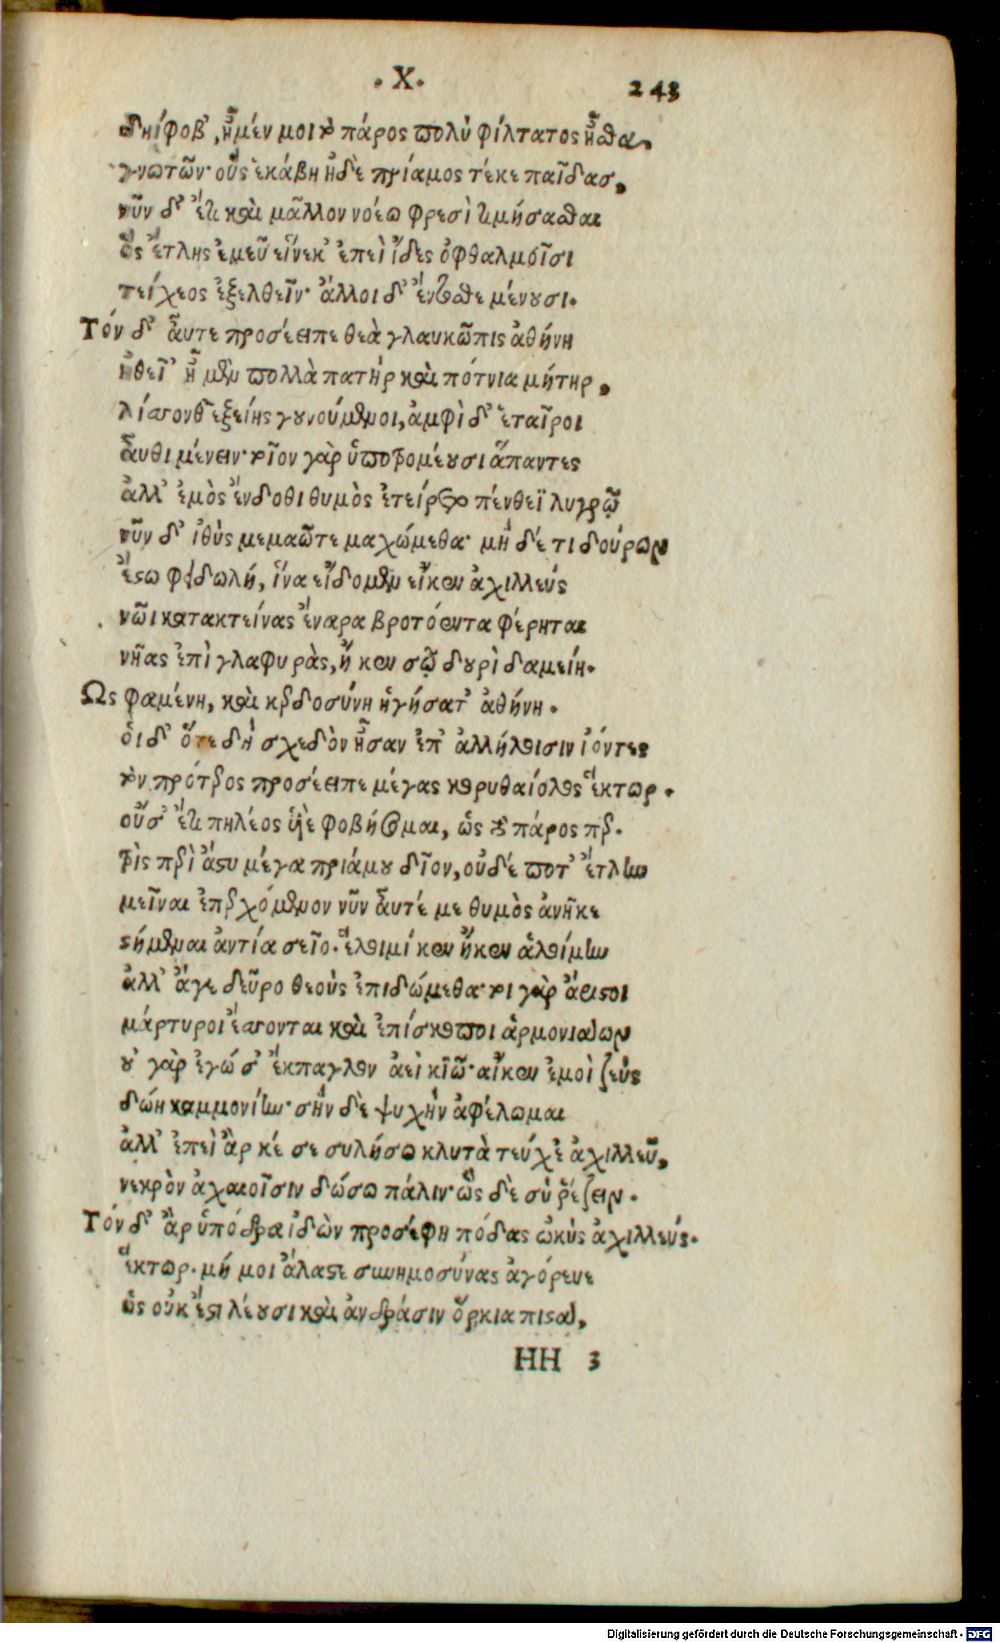 ·Χ· 243
δηίφοβ’, ἦ μέν μοι τὸ πάρος πολὺ φίλτατος ἦσθα,
γνωτῶν· οὓς ἑκάβη ἠδὲ πρίαμος τέκε παῖδασ,
νῦν δ’ ἔτι καὶ μᾶλλον νοέω φρεσὶ τιμήσασθαι
ὃς ἔτλης ἐμεῦ εἵνεκ’ ἐπεὶ ἴδες ὀφθαλμοῖσι
τείχεος ἐξελθεῖν· ἄλλοι δ’ ἔντοσθε μένουσι.
Τόν δ’ αὖτε προσέειπε θεὰ γλαυκῶπις ἀθήνη
ἠθεῖ’ ἦ μὲν πολλὰ πατὴρ καὶ πότνια μήτηρ,
λίσσονθ’ ἑξείης γουνούμενοι, ἀμφὶ δ’ ἑταῖροι
αὖθι μένειν· τοῖον γὰρ ὑποτρομέουσι ἅπαντες
ἀλλ’ ἐμὸς ἔνδοθι θυμὸς ἐτείρετο πένθεϊ λυγρῷ
νῦν δ’ ἰθὺς μεμαῶτε μαχώμεθα· μὴ δέ τι δούρων
ἔστω φειδωλή, ἵνα εἴδομεν εἴκεν ἀχιλλεύς
νῶι κατακτείνας ἔναρα βροτόεντα φέρηται
νῆας ἐπὶ γλαφυρὰς, ἤ κεν σῷ δουρὶ δαμείη.
Ως φαμένη, καὶ κερδοσύνη ἡγήσατ’ ἀθήνη.
ὁι δ’ ὅτε δὴ σχεδὸν ἦσαν ἐπ’ ἀλλήλοισιν ἰόντες
τὸν πρότερος προσέειπε μέγας κορυθαίολος ἕκτωρ.
οὔ σ’ ἔτι πηλέος ὑιὲ φοβήσομαι, ὡς τὸ πάρος περ.
τρὶς περὶ ἄστυ μέγα πριάμου δῖον, οὐδέ ποτ’ ἔτλην
μεῖναι ἐπερχόμενον νῦν αὖτέ με θυμὸς ἀνῆκε
στήμεναι ἀντία σεῖο. ἕλοιμί κεν ἤκεν ἁλοίμην
ἀλλ’ ἄγε δεῦρο θεοὺς ἐπιδώμεθα· τοὶ γὰρ ἄριστοι
μάρτυροι ἔσσονται καὶ ἐπίσκοποι ἁρμονιάων
οὐ γὰρ ἐγώ σ’ ἔκπαγλον ἀεικιῶ· αἴκεν ἐμοὶ ζεὺς
δώη καμμονίην· σὴν δὲ ψυχὴν ἀφέλωμαι
ἀλλ’ ἐπεὶ ἂρ κέ σε συλήσω κλυτὰ τεύχε’ ἀχιλλεῦ,
νεκρὸν ἀχαιοῖσιν δώσω πάλιν· ὣς δὲ σὺ ῥέζειν.
Τόν δ’ ἂρ ὑπόδρα ἰδὼν προσέφη πόδας ὠκὺς ἀχιλλεύς.
ἕκτωρ· μή μοι ἄλαστε συνημοσύνας ἀγόρευε
ὡς οὐκ ἔστι λέουσι καὶ ἀνδράσιν ὅρκια πιστά,
ΗΗ 3
Digitalisierung gefördert durch die Deutsche Forschungsgemeinschaft - DFG